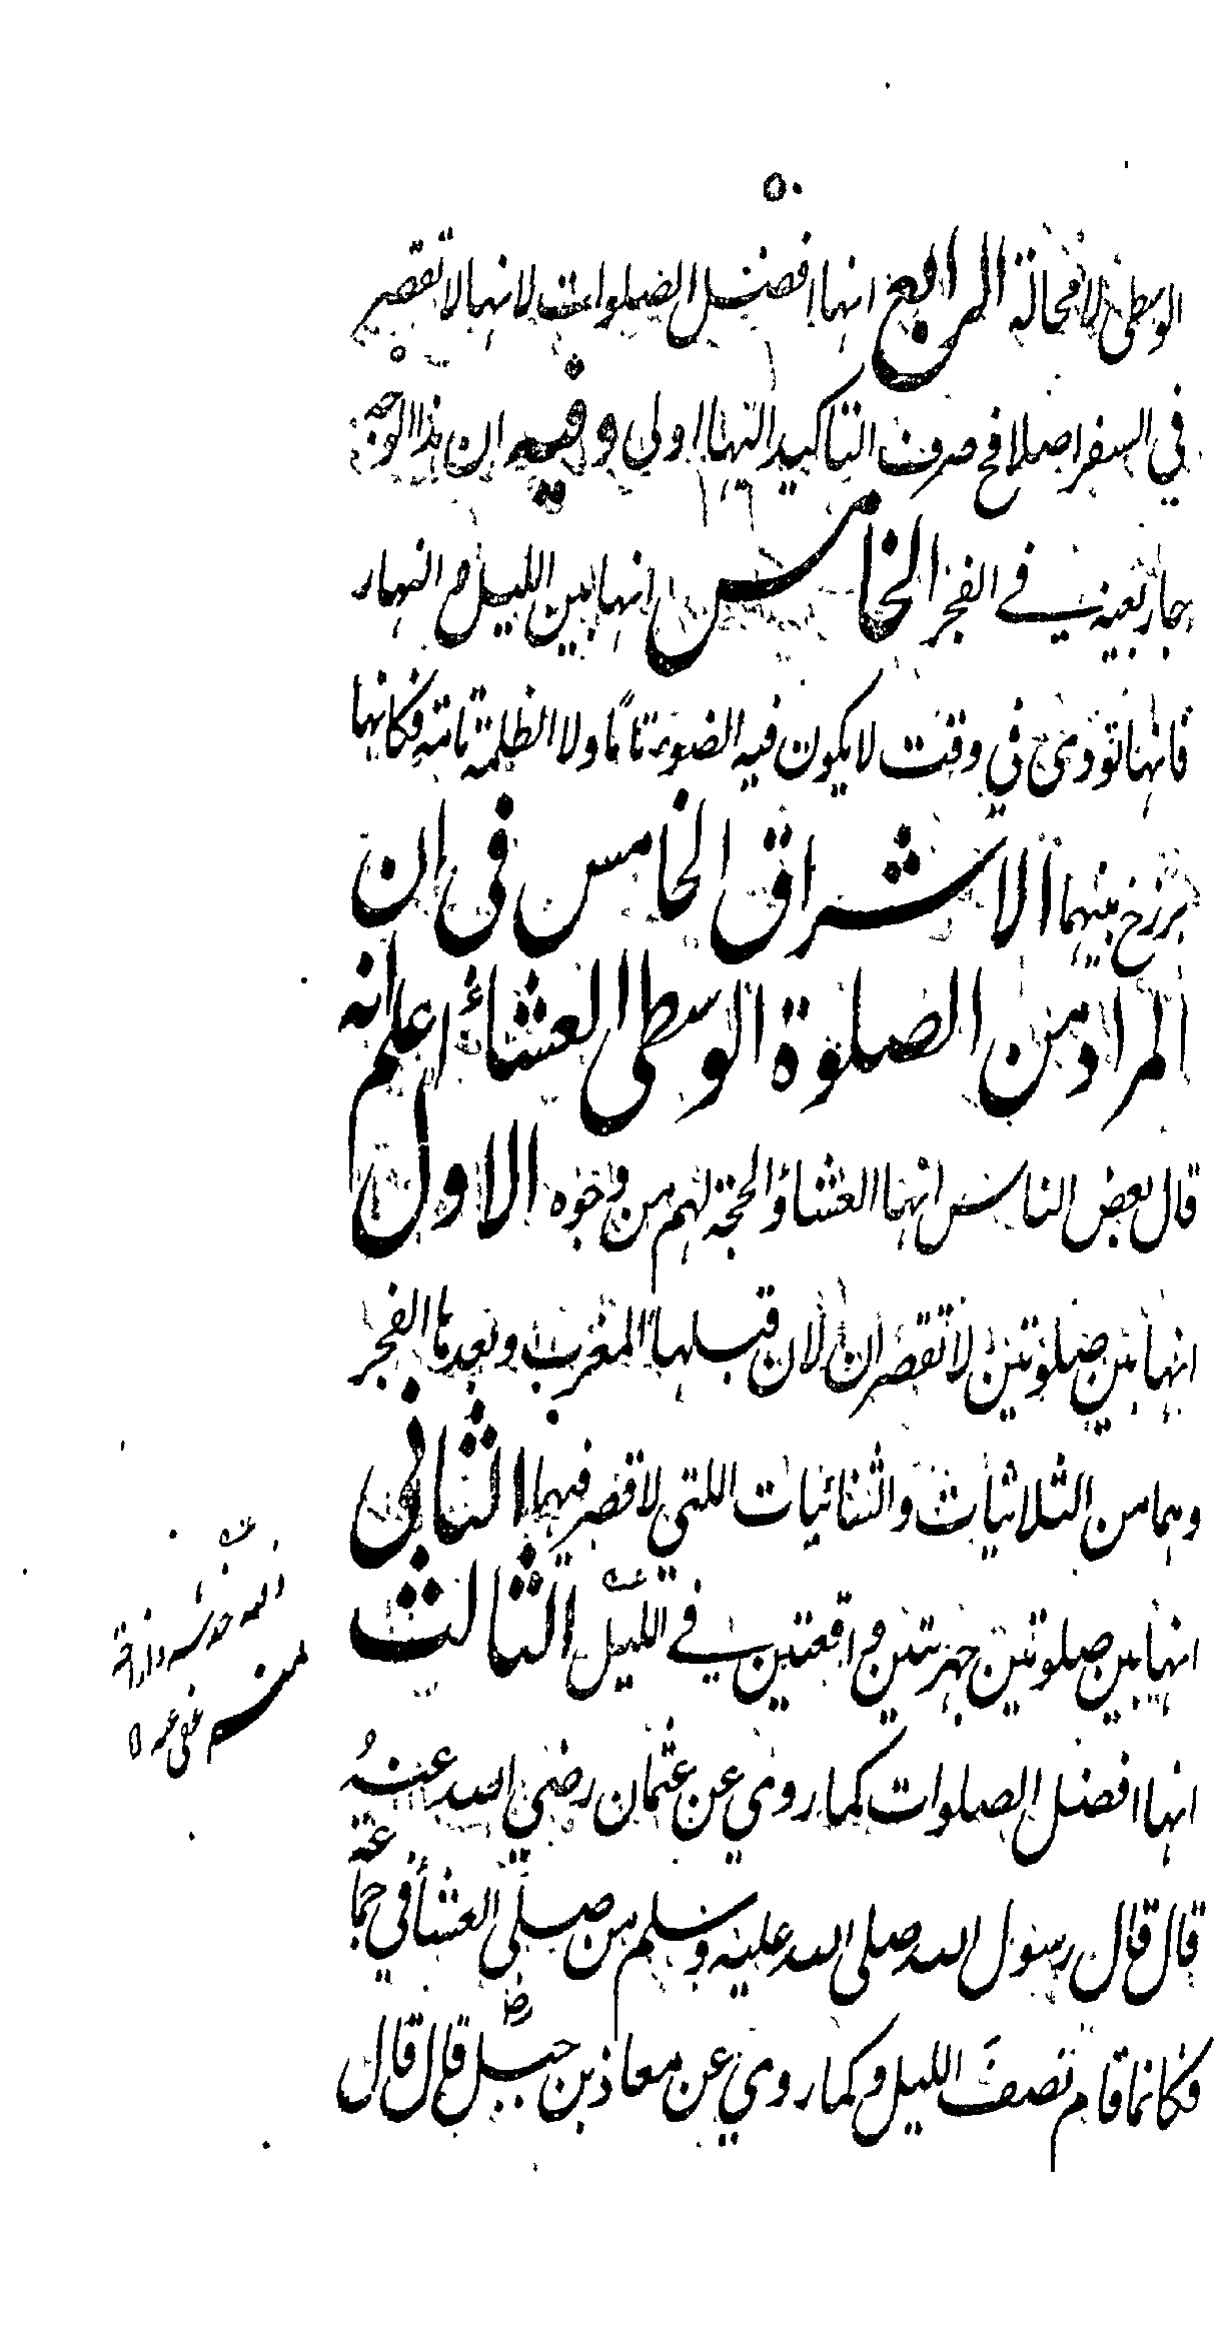 ٥٠
الوسطى لا محالة الرابع انها افضل الصلوات لانها لا تقصر
في السفر اصلا فح صرف التاكيد اليها اولى وفيه ان هذا الوجه
جار بعينه في الفجر الخامس انها بين الليل و النهار
فانها تؤدى في وقت لا يكون فيه الضوء تاما ولا الظلمة تامة فكانها
برزخ بينهما الاشراق الخامس في ان
المراد من الصلوة الوسطى العشاء اعلم انه
قال بعض الناس انها العشاء والحجة لهم من وجوه الاول
انها بين صلوتين لا تقصران لان قبلها المغرب وبعدها الفجر
وهما من الثلاثيات والثنائيات اللتي لا قصر فيهما الثاني
انها بين صلوتين جهريتين واقعتين في الليل الثالث
انها افضل الصلوات كما روي عن عثمان رضي الله عنه
قال قال رسول الله صلى الله عليه وسلم من صلى العشاء في جماعة
فكانما قام نصف الليل وكما روي عن معاذ بن جبل رض قال قال